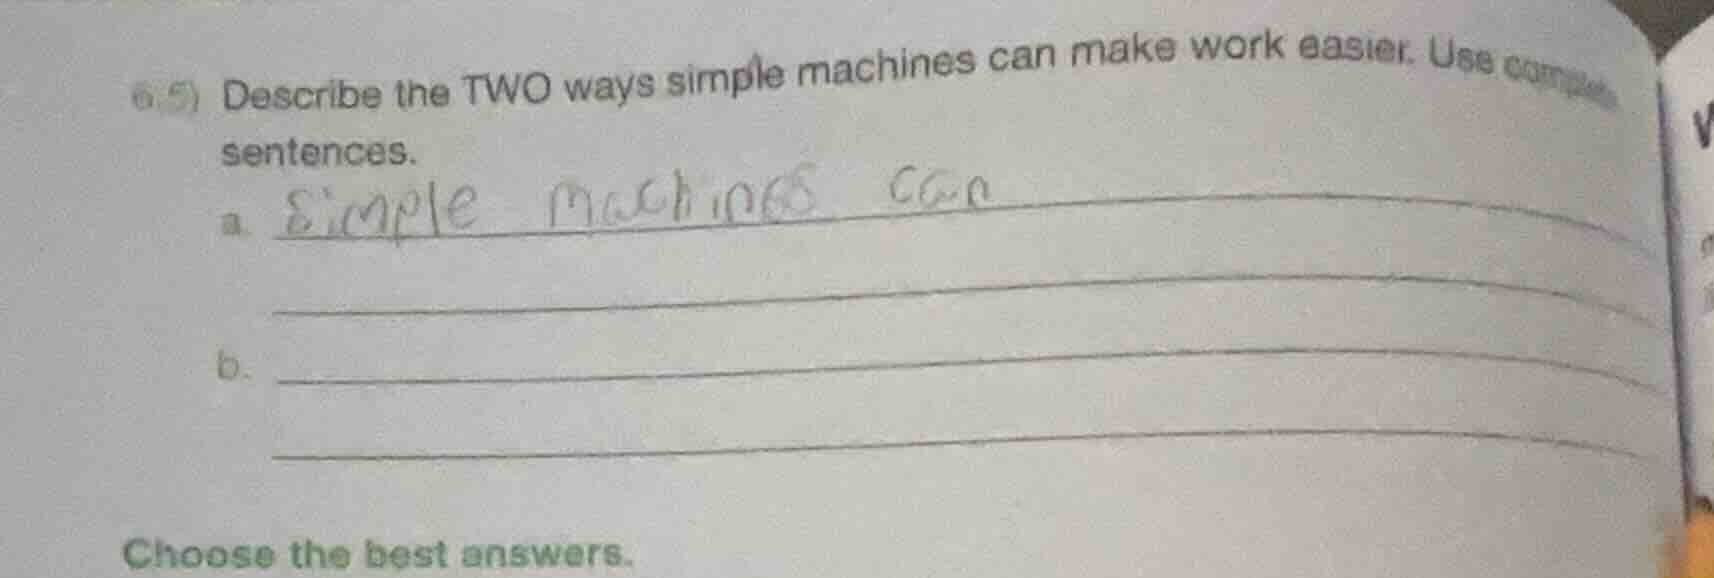 6.5) Describe the TWO ways simple machines can make work easier. Use complete
sentences.
a. Simple machines can
b.
Choose the best answers.